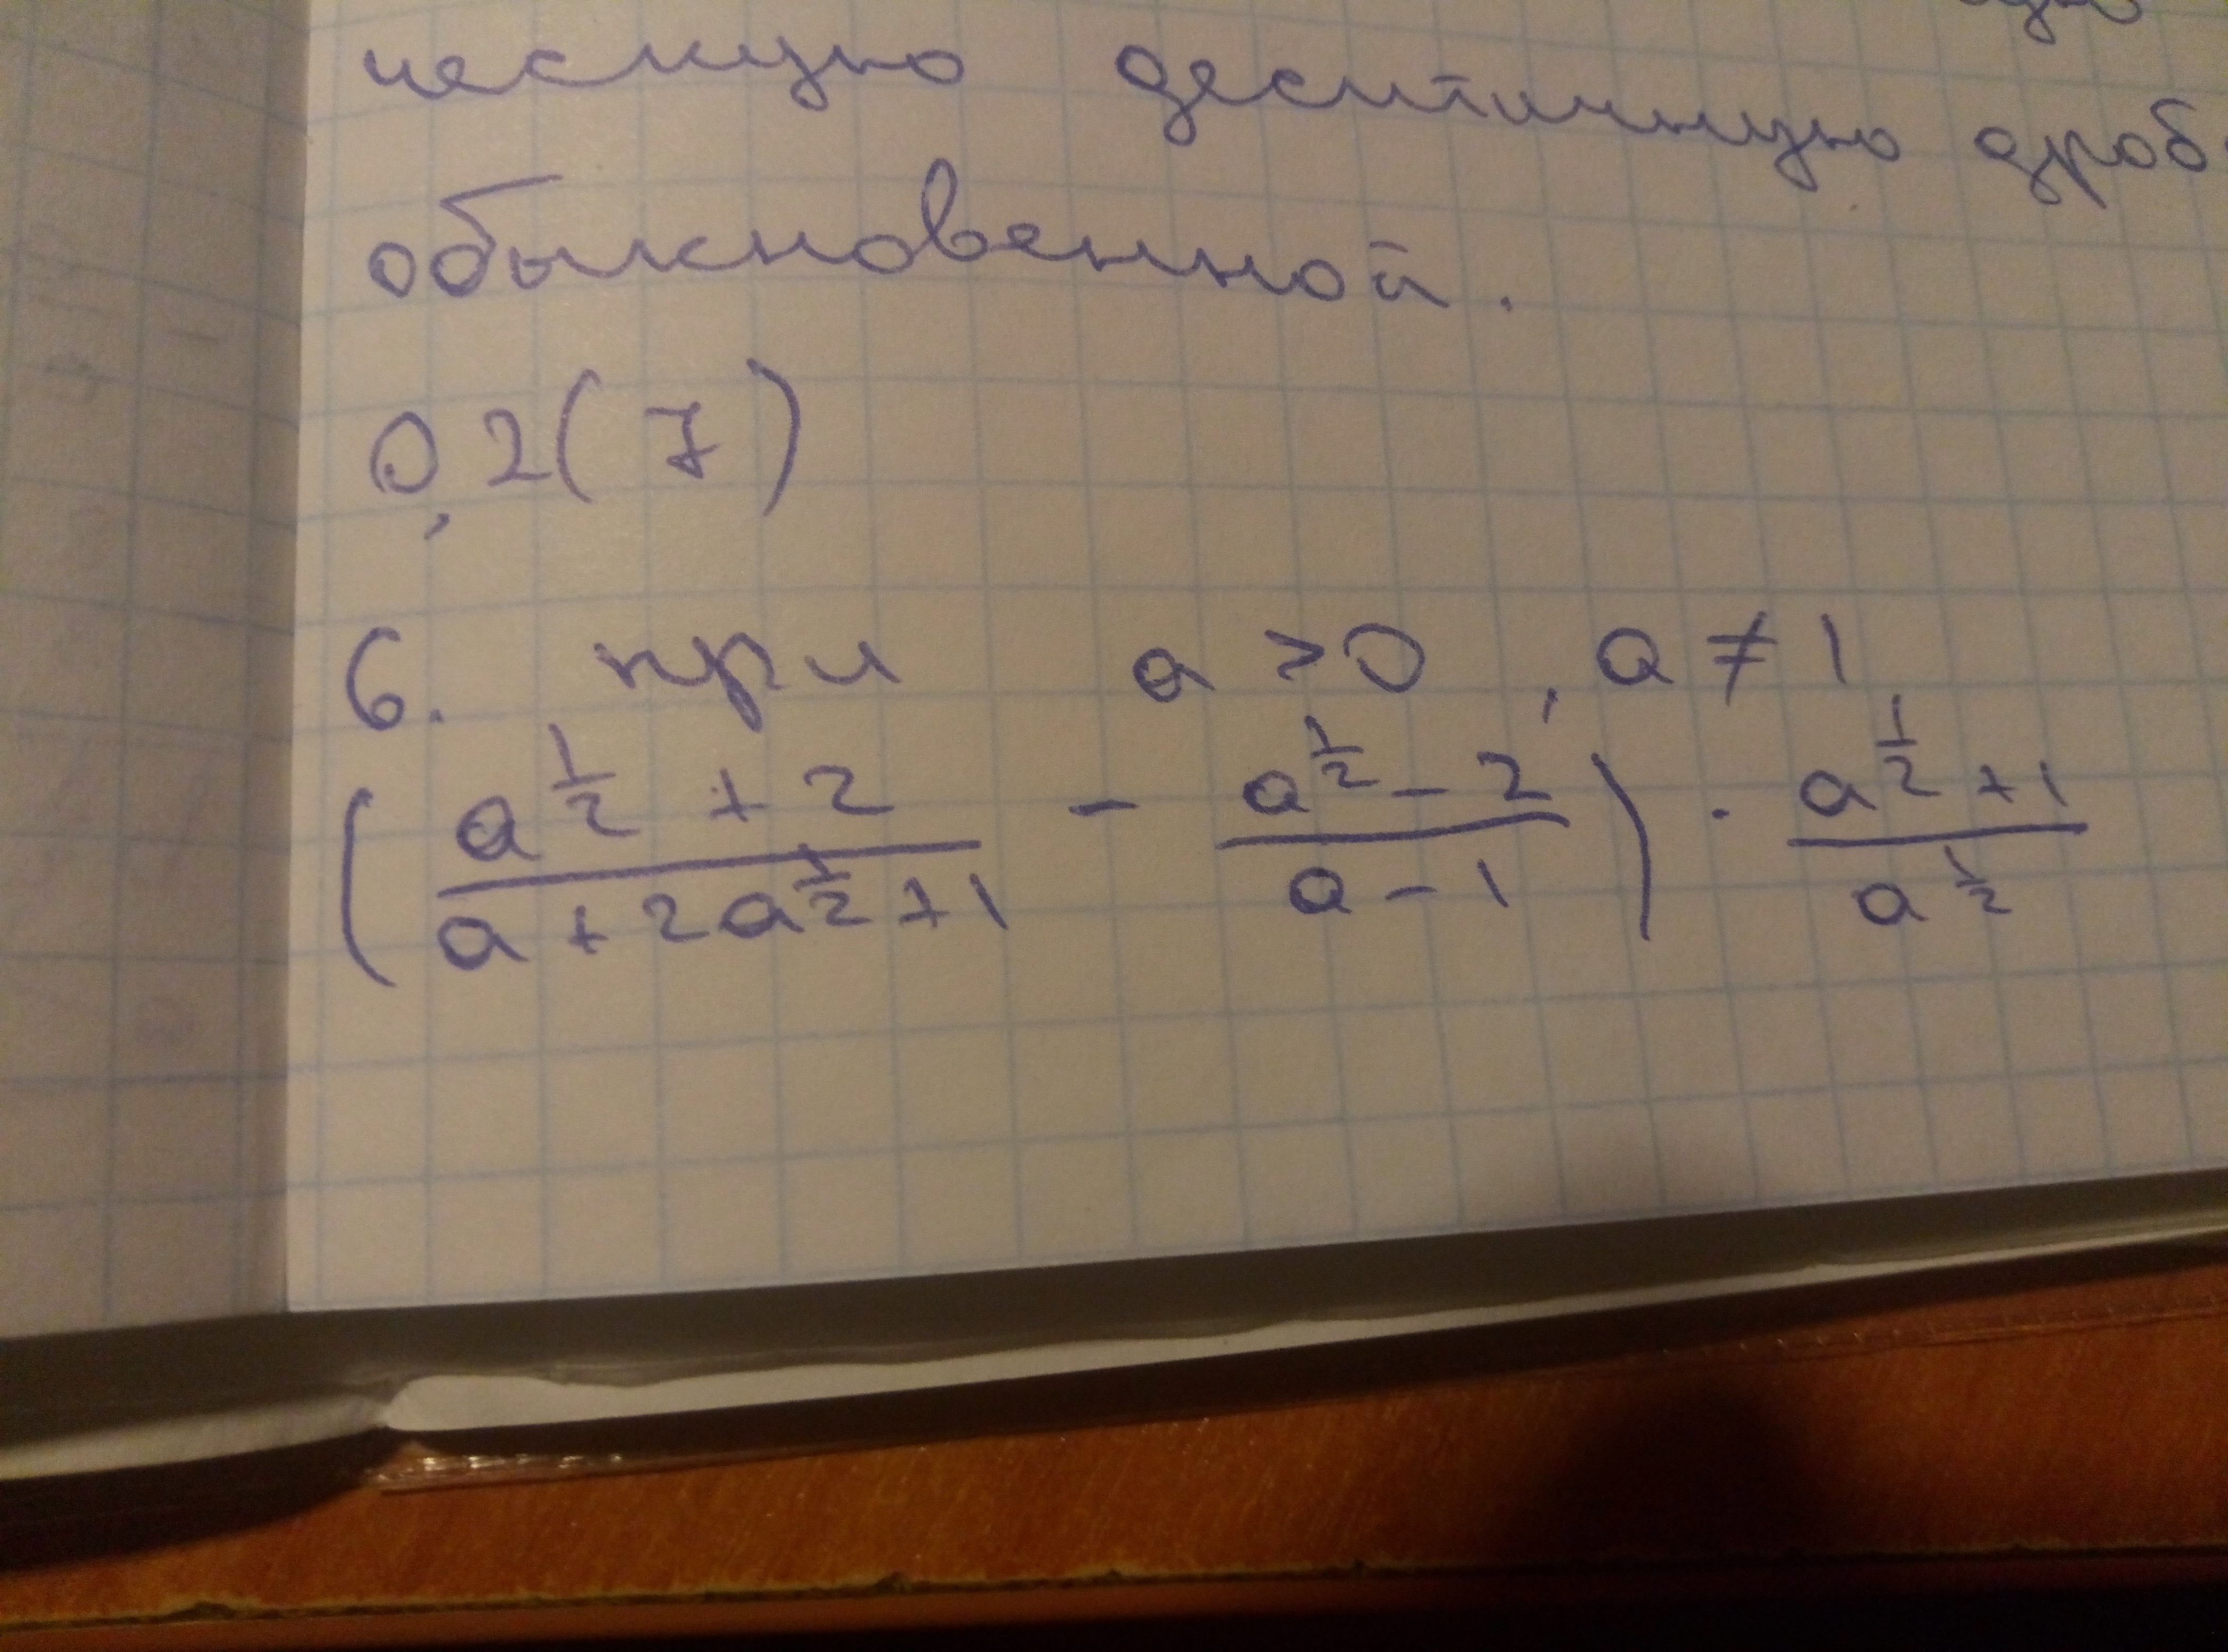 ческую десятичную дроб
обыкновенной.
0,2(7)
6. при a > 0, a ≠ 1
(a^{1/2} + 2 / a + 2a^{1/2} + 1 - a^{1/2} - 2 / a - 1) · a^{1/2} + 1 / a^{1/2}